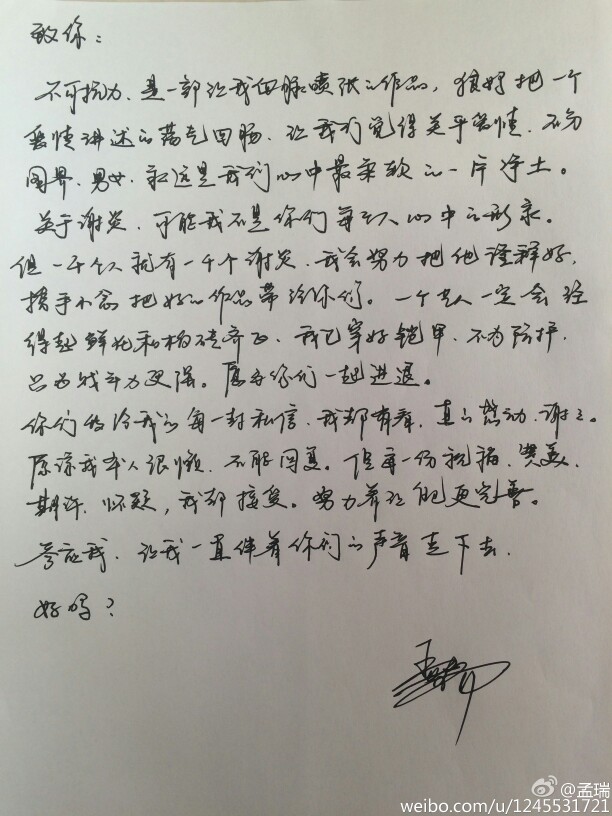 致你：
不可抗力，是一部让我血脉喷张的作品，很好把一个
爱情讲述的荡气回肠，让我们觉得关乎爱情，不分
国界，男女，永远是我们心中最柔软的一片净土。
关于谢炎，可能我不是你们每个人心中的形象。
但一千个人就有一千个谢炎，我会努力把他诠释好，
携手小念把好的作品带给你们。一个男人一定会经
得起鲜花和板砖齐飞，我已穿好铠甲，不为防护，
只为战斗力更强。愿与你们一起进退。
你们给我的每一封私信，我都有看，真的感动，谢谢。
原谅我本人很懒，不能回复。但每一份祝福，赞美，
期许，怀疑，我都接受。努力让自己更完善。
答应我，让我一直伴着你们的声音走下去，
好吗？
孟瑞
@孟瑞
weibo.com/u/1245531721